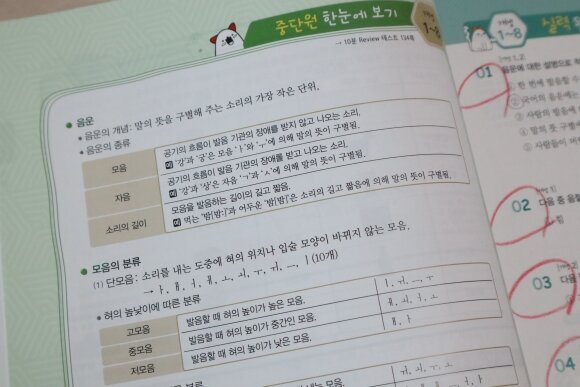 중단원 한눈에 보기
개념 1~8
→ 10분 Review 테스트 134쪽
● 음운
• 음운의 개념: 말의 뜻을 구별해 주는 소리의 가장 작은 단위.
• 음운의 종류
모음
공기의 흐름이 발음 기관의 장애를 받지 않고 나오는 소리.
예 '강'과 '궁'은 모음 'ㅏ'와 'ㅜ'에 의해 말의 뜻이 구별됨.
자음
공기의 흐름이 발음 기관의 장애를 받고 나오는 소리.
예 '강'과 '상'은 자음 'ㄱ'과 'ㅅ'에 의해 말의 뜻이 구별됨.
소리의 길이
모음을 발음하는 길이의 길고 짧음.
예 먹는 '밤[밤:]'과 어두운 '밤[밤]'은 소리의 길고 짧음에 의해 말의 뜻이 구별됨.
● 모음의 분류
(1) 단모음: 소리를 내는 도중에 혀의 위치나 입술 모양이 바뀌지 않는 모음.
→ ㅏ, ㅐ, ㅓ, ㅔ, ㅗ, ㅚ, ㅜ, ㅟ, ㅡ, ㅣ (10개)
• 혀의 높낮이에 따른 분류
고모음
발음할 때 혀의 높이가 높은 모음.
ㅣ, ㅟ, ㅡ, ㅜ
중모음
발음할 때 혀의 높이가 중간인 모음.
ㅔ, ㅚ, ㅓ, ㅗ
저모음
발음할 때 혀의 높이가 낮은 모음.
ㅐ, ㅏ
개념 1~8
실력
01
음운에 대한 설명으로
① 한 번에 발음할 수
② 국어의 음운에는
③ 사람의 발음
④ 말의 뜻 구별
⑤ 사람들이
02
다음 중 음
03
다음
04